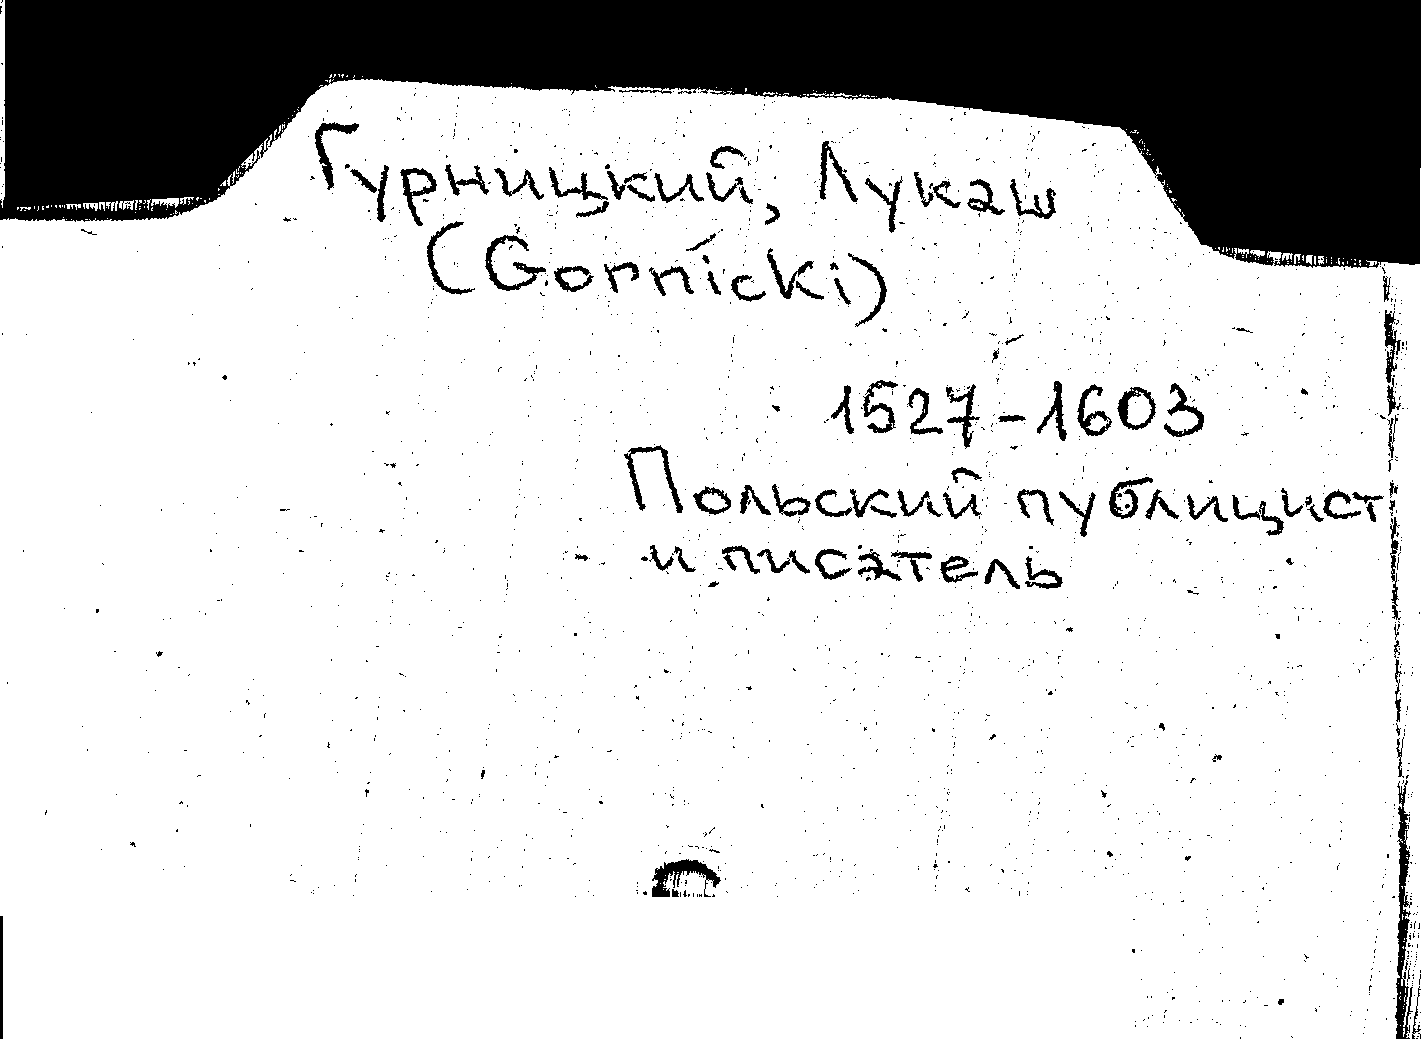 Гурницкий, Лукаш
(Gorńicki)
1527-1603
Польский публицист
и писатель